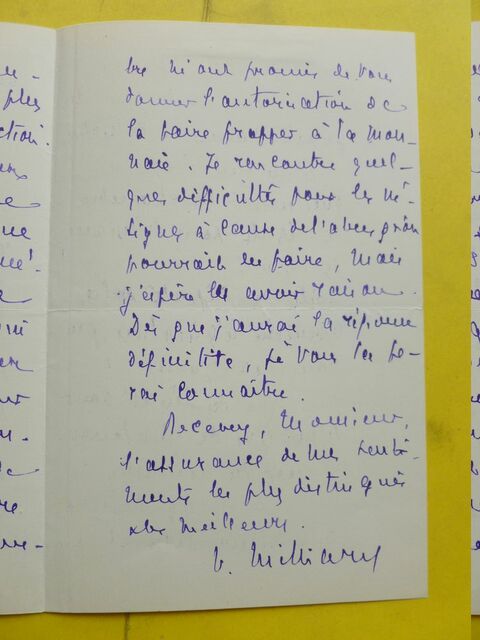 plus
ction.
bre m'ont promis de vous
donner l'autorisation de
la faire frapper à la Mon-
naie. Je rencontre quel-
ques difficultés pour les in-
signes à cause de l'abus qu'on
pourrait en faire, mais
j'espère en avoir raison.
Dès que j'aurai la réponse
définitive, je vous la fe-
rai connaître.
Recevez, Monsieur,
l'assurance de mes senti-
ments les plus distingués
et les meilleurs.
V. Milliard